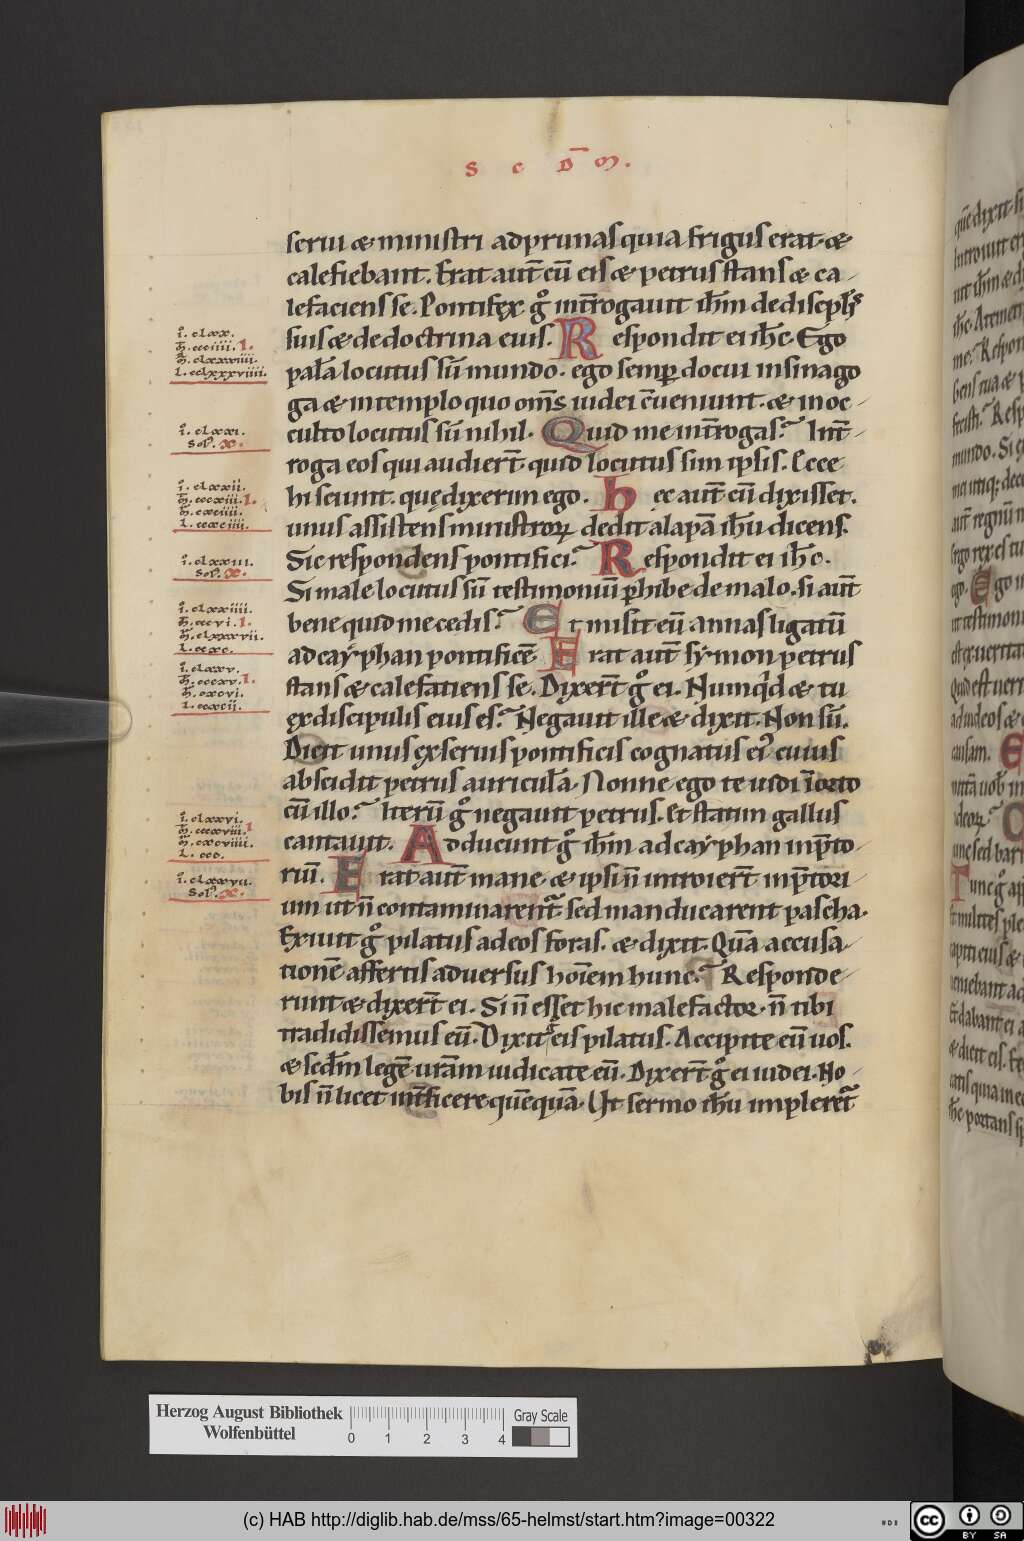 S C D̄ M.
serui & ministri ad prunas quia frigus erat. &
calefiebant. Erat aut̄ cū eis & petrus stans & ca-
lefaciens se. Pontifex gͦ int̄rogauit ih̄m de discipl̓is
suis & de doctrina eius. Respondit ei ih̄c. Ego
palā locutus sū mundo. ego semꝑ docui in sinago
ga & in templo quo om̄s iudei c̄ueniunt. & in oc-
culto locutus sū nihil. Quid me int̄rogas? Int̄-
roga eos qui audier̄t quid locutus sim ipsis. Ecce
hi sciunt. quę dixerim ego. hęc aut̄ cū dixisset.
unus assistens ministroꝝ dedit alapā ih̄u dicens.
Sic respondens pontifici? Respondit ei ih̄c.
Si male locutus sū testimoniū ꝑhibe de malo. si aut̄
bene quid me cedis? Et misit eū annas ligatū
ad cayphan pontificē. Erat aut̄ symon petrus
stans & calefatiens se. Dixer̄t gͦ ei. Numqͥd & tu
ex discipulis eius es? Negauit ille & dixit. Non sū.
Dicit unus ex seruis pontificis cognatus ei᾽ cuius
abscidit petrus auriculā. Nonne ego te uidi ī orto
cū illo? Iterū gͦ negauit petrus. Et statim gallus
cantauit. Adducunt gͦ ih̄m ad cayphan in p̄to-
riū. Erat aut̄ mane. & ipsi n̄ introier̄t in p̄tori
um ut n̄ contaminarent̄. sed manducarent pascha.
Exiuit gͦ pilatus ad eos foras. & dixit. Quā accusa-
tionē affertis aduersus hoīem hunc? Responde-
runt & dixer̄t ei. Si n̄ esset hic malefactor. n̄ tibi
tradidissemus eū. Dixit gͦ eis pilatus. Accipite eū uos.
& sed̄m legē urām iudicate eū. Dixer̄t gͦ ei iudei. No-
bis n̄ licet int̄ficere quēquā. Ut sermo ih̄u impleret̄
ı̊. clxx.
m̄. ccciiii. I.
m̄. clxxxiiii.
l. cclxxxviiii.
ı̊. clxxi.
Sol̓. X.
ı̊. clxxii.
m̄. cccxiii. I.
m̄. cxciiii.
l. ccxciiii.
ı̊. clxxiii.
Sol̓. X.
ı̊. clxxiiii.
m̄. cccvi. I.
m̄. clxxxvii.
l. ccxc.
ı̊. clxxv.
m̄. cccxv. I.
m̄. cxcvi.
l. ccxcii.
ı̊. clxxvi.
m̄. cccxviii. I
m̄. cxcviiii.
l. ccc.
ı̊. clxxvii.
Sol̓. X.
Herzog August Bibliothek
Wolfenbüttel
0 1 2 3 4
Gray Scale
(c) HAB http://diglib.hab.de/mss/65-helmst/start.htm?image=00322
cc BY SA